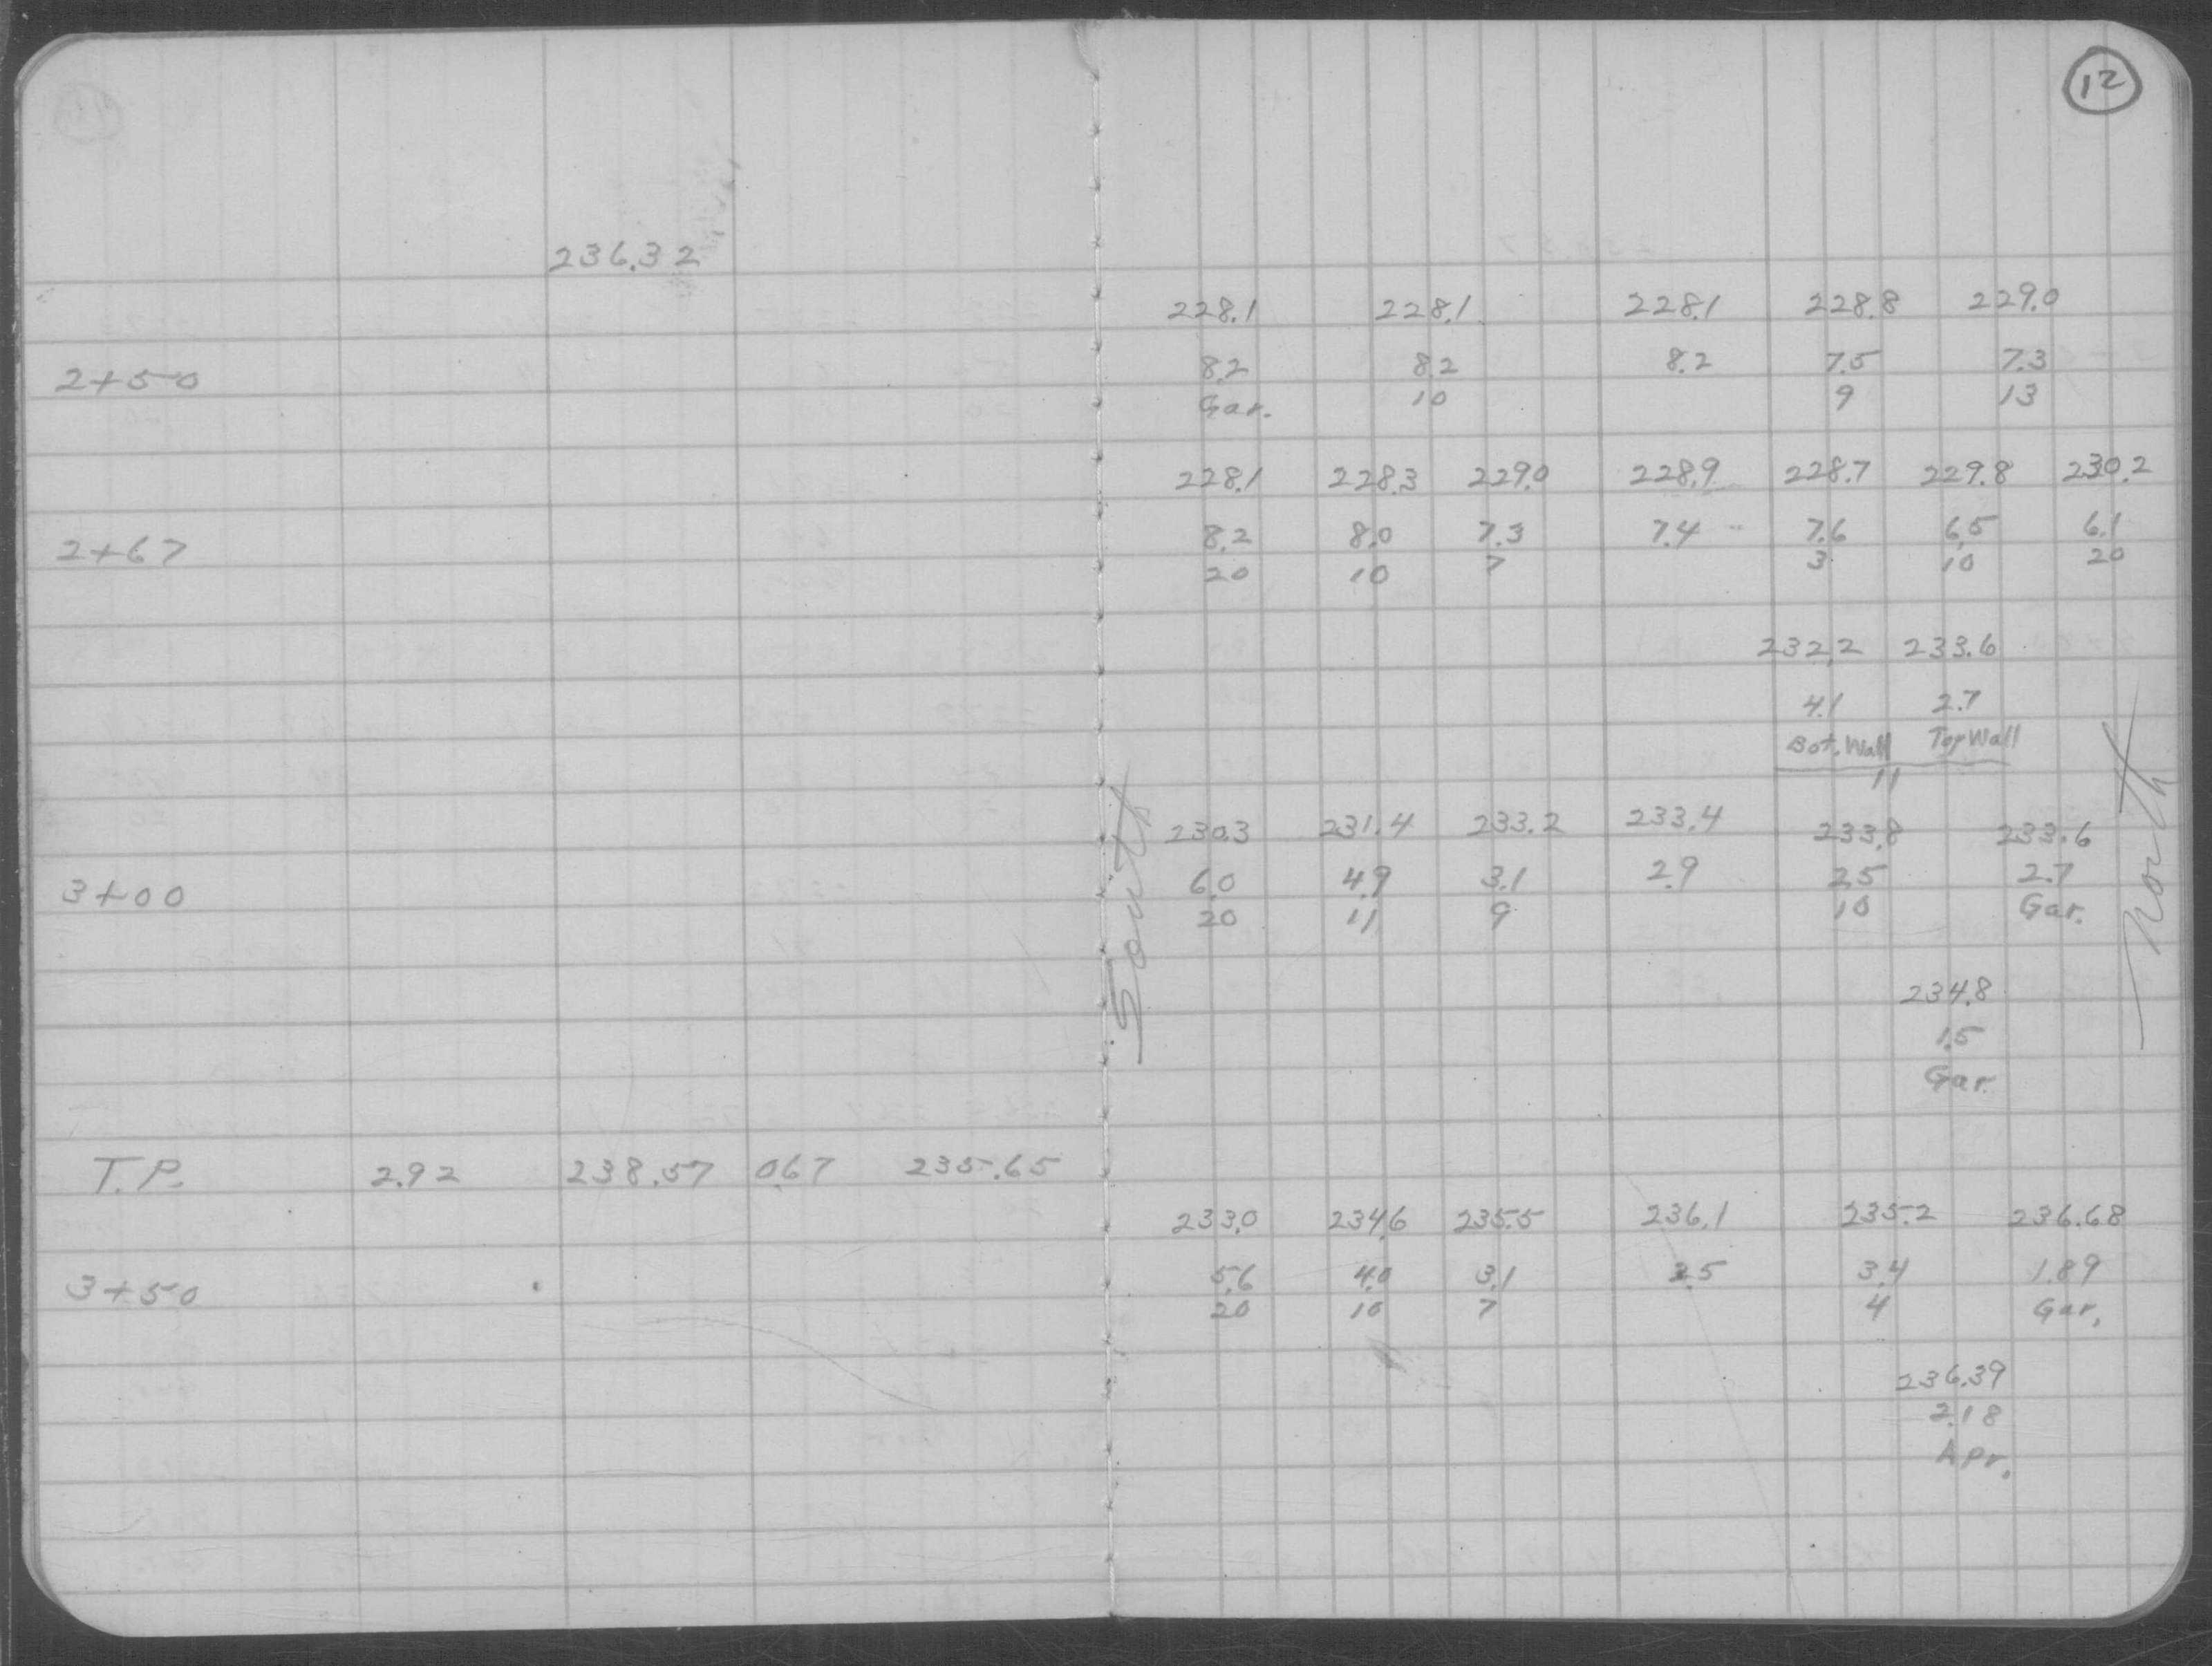 12
236.32
228.1 228.1 228.1 228.8 229.0
2+50 8.2 8.2 8.2 7.5 7.3
Gar. 10 9 13
228.1 228.3 229.0 228.9 228.7 229.8 230.2
2+67 8.2 8.0 7.3 7.4 7.6 6.5 6.1
20 10 7 3 10 20
232.2 233.6
4.1 2.7
Bot. Wall Top Wall
11
South
North
230.3 231.4 233.2 233.4 233.8 233.6
3+00 6.0 4.9 3.1 2.9 2.5 2.7
20 11 9 10 Gar.
234.8
1.5
Gar.
T.P. 2.92 238.57 0.67 235.65
233.0 234.6 235.5 236.1 235.2 236.68
3+50 5.6 4.0 3.1 2.5 3.4 1.89
20 10 7 4 Gar.
236.39
2.18
Apr.